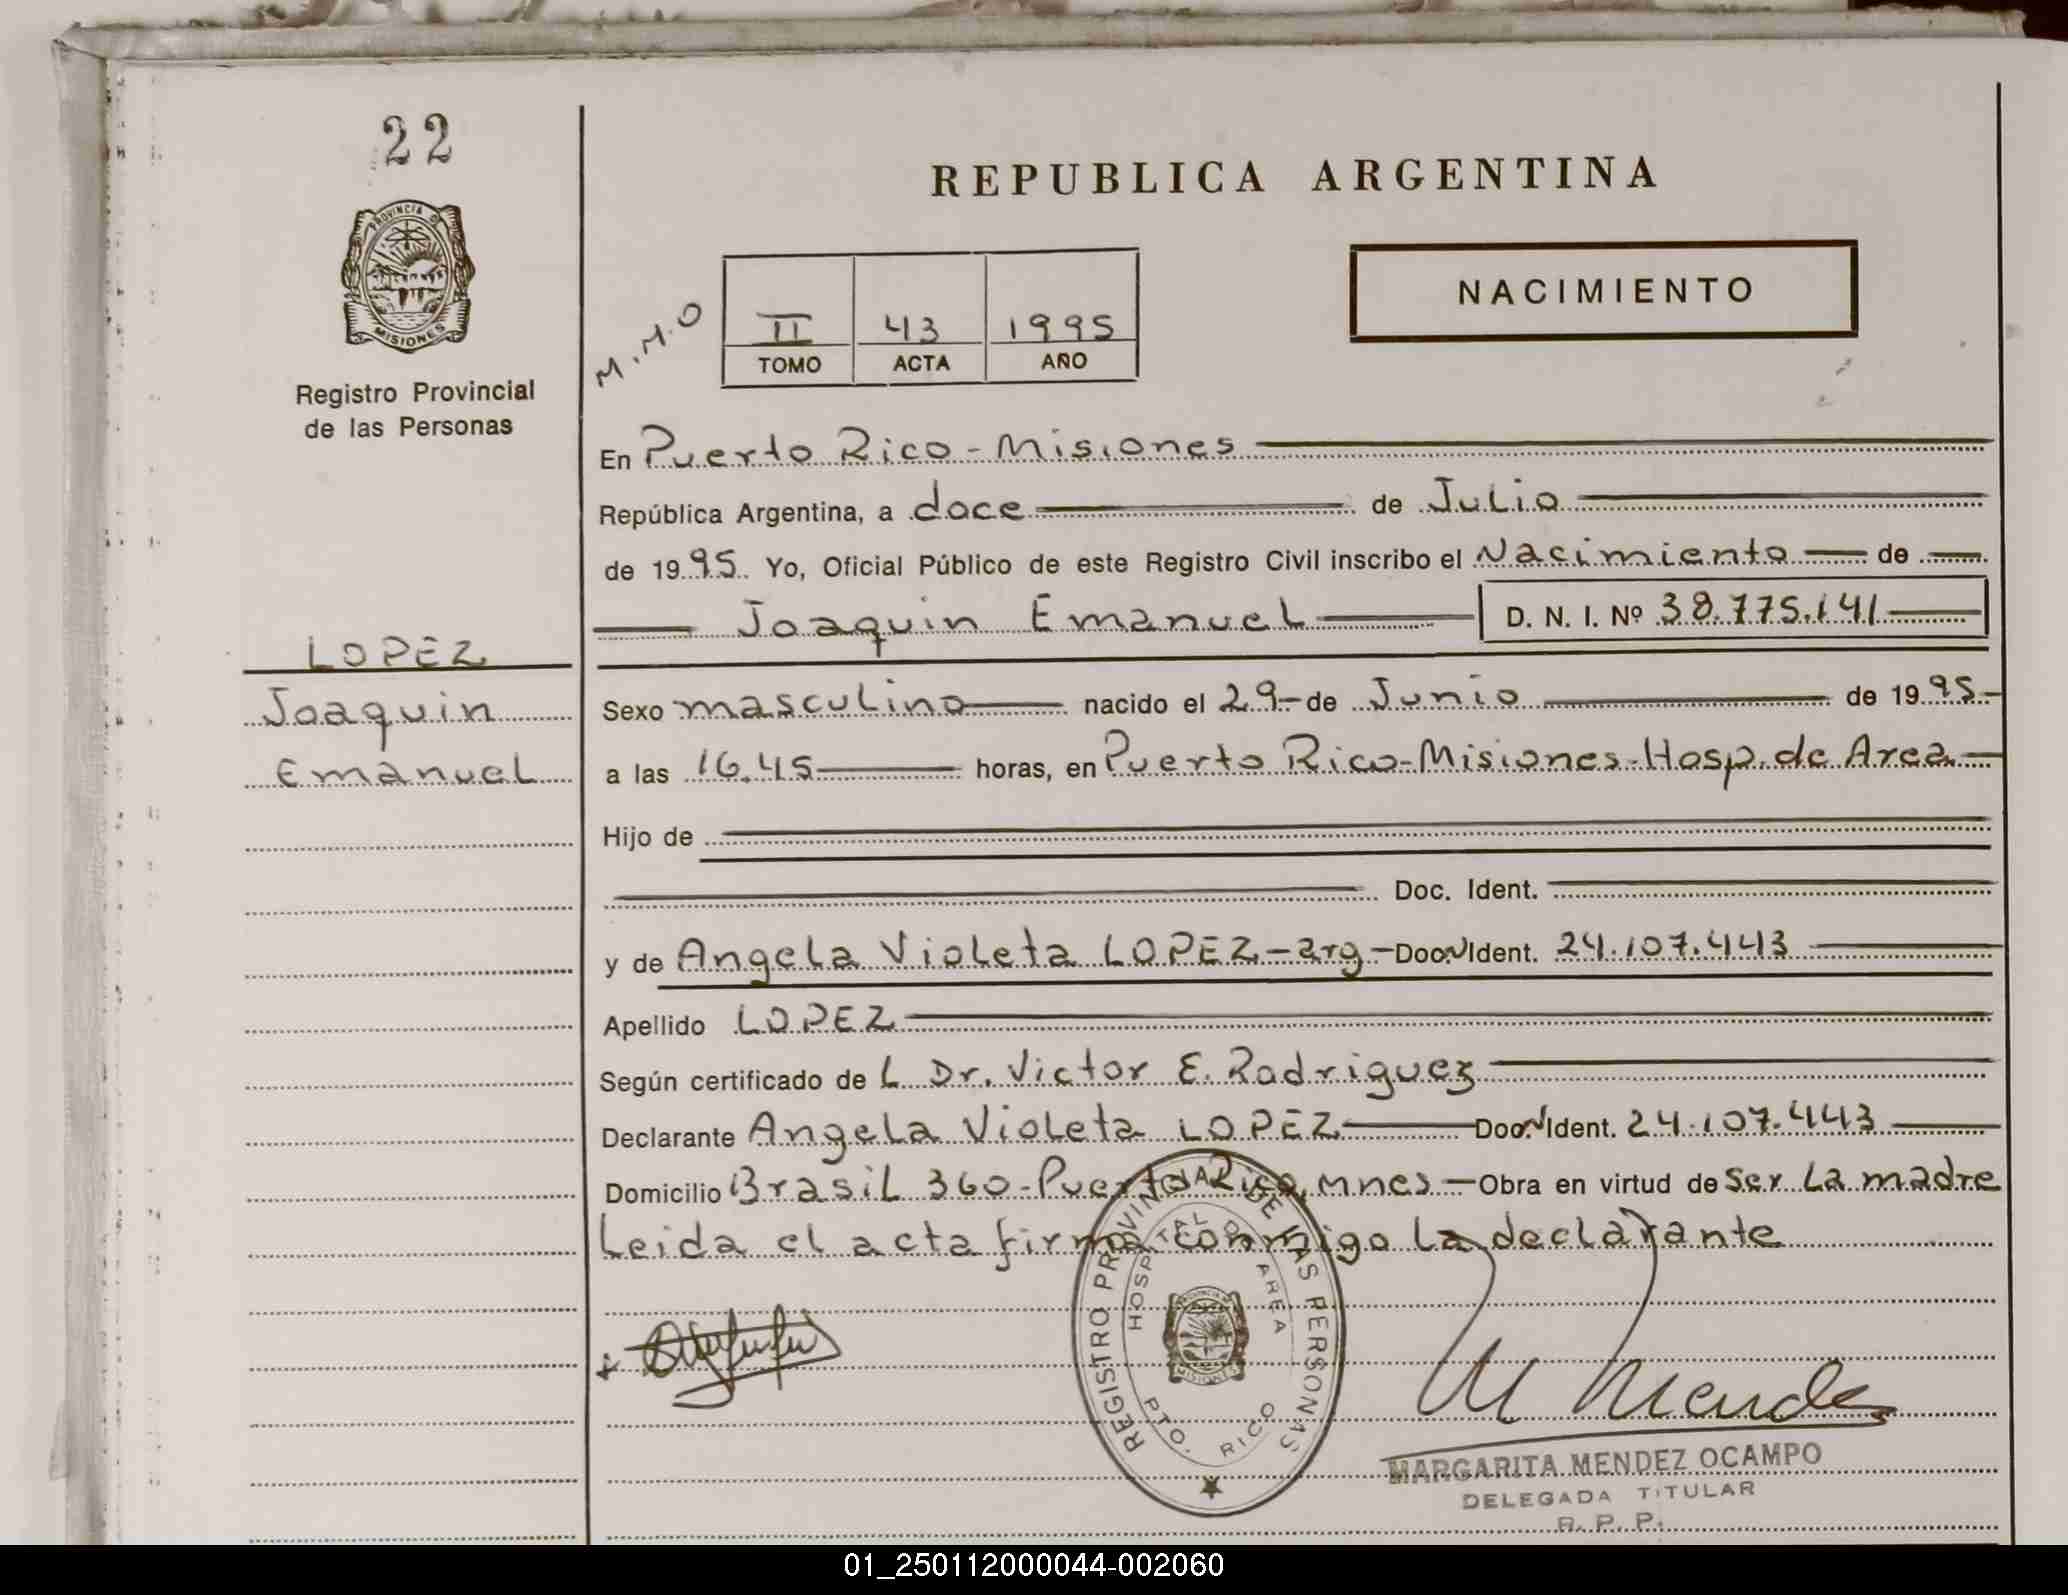 22
PROVINCIA DE
MISIONES
Registro Provincial
de las Personas
REPUBLICA ARGENTINA
NACIMIENTO
M.M.O
II 43 1995
TOMO ACTA AÑO
En Puerto Rico - Misiones
República Argentina, a doce de Julio
de 1995. Yo, Oficial Público de este Registro Civil inscribo el Nacimiento de
Joaquin Emanuel D. N. I. Nº 38.775.141
LOPEZ
Joaquin
Emanuel
Sexo masculino nacido el 29 de Junio de 1995
a las 16.45 horas, en Puerto Rico-Misiones-Hosp. de Area
Hijo de
Doc. Ident.
y de Angela Violeta LOPEZ-arg-Doc. Ident. 24.107.443
Apellido LOPEZ
Según certificado de L Dr. Victor E. Rodriguez
Declarante Angela Violeta LOPEZ Doc. Ident. 24.107.443
Domicilio Brasil 360-Puerto Rico, Mnes - Obra en virtud de ser la madre
Leida el acta firma conmigo la declarante
REGISTRO PROVINCIAL DE LAS PERSONAS
HOSPITAL DE AREA
PTO. RICO
MISIONES
M Mendez
MARGARITA MENDEZ OCAMPO
DELEGADA TITULAR
R. P. P.
01_250112000044-002060